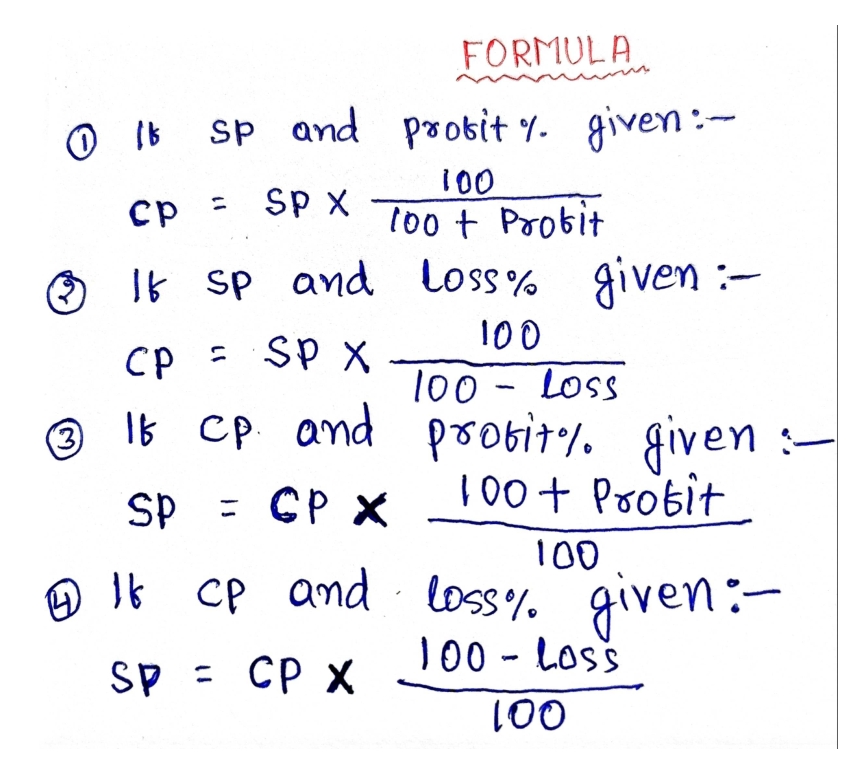 FORMULA
① If SP and profit % given :-
CP = SP X 100 / 100 + Profit
② If SP and Loss % given :-
CP = SP X 100 / 100 - Loss
③ If CP. and profit % given :-
SP = CP X 100 + Profit / 100
④ If CP and loss % given :-
SP = CP X 100 - Loss / 100